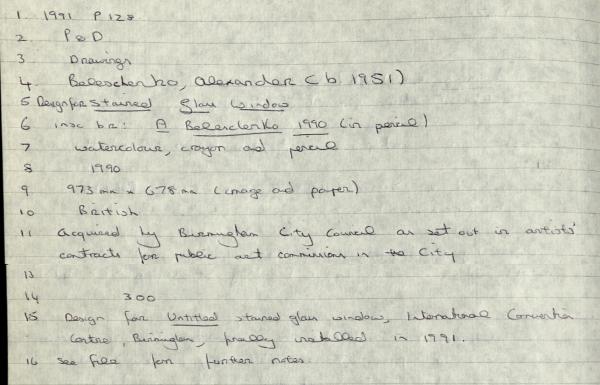 1 1991 P 128
2 P & D
3 Drawings
4 Beleschenko, Alexander (b 1951)
5 Design for Stained Glass Window
6 insc br: A Beleschenko 1990 (in pencil)
7 watercolour, crayon and pencil
8 1990
9 973 mm x 678 mm (image and paper)
10 British
11 Acquired by Birmingham City Council as set out in artists'
contracts for public art commissions in the City
13
14 300
15 Design for Untitled stained glass window, International Convention
Centre, Birmingham, finally installed in 1991.
16 See file for further notes.